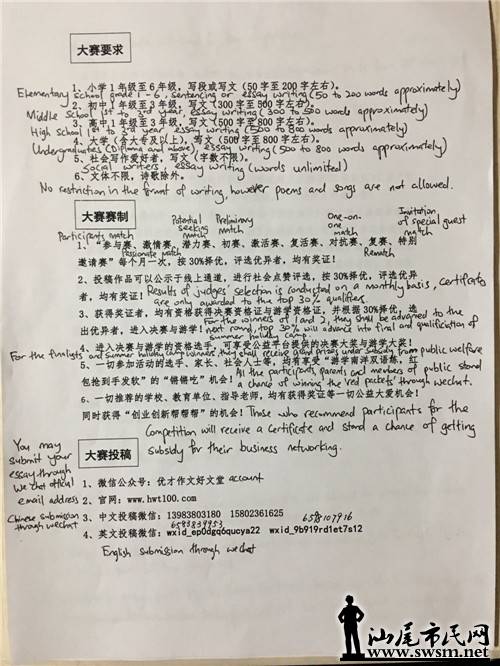 大赛要求
1、小学1年级至6年级，写段或写文（50字至200字左右）。
Elementary school grade 1-6, sentencing or essay writing (50 to 200 words approximately)
2、初中1年级至3年级，写文（300字至500字左右）。
Middle School 1st to 3rd year, essay writing (300 to 500 words approximately)
3、高中1年级至3年级，写文（500字至800字左右）。
High School 1st to 3rd year essay writing (500 to 800 words approximately)
4、大学（含大专及以上），写文（500字至800字左右）。
Undergraduates (Diploma and above), essay writing (500 to 800 approximately)
5、社会写作爱好者，写文（字数不限）。
Social writers, essay writing (words unlimited)
6、文体不限，诗歌除外。
No restriction in the format of writing, however poems and songs are not allowed.
大赛赛制
Participants match Passionate match Potential seeking match Preliminary match One-on-one match Rematch Invitation of special guest match
1、“参与赛、激情赛、潜力赛、初赛、激活赛、复活赛、对抗赛、复赛、特别
邀请赛”每个月一次，按30%择优，评选优异者，均有奖证！
2、投稿作品可以公示于线上通道，进行社会点赞评选，按30%择优，评选优异
者，均有奖证！
Results of judges' selection is conducted on a monthly basis, certificates are only awarded to the top 30% qualifiers.
3、获得奖证者，均有资格获得决赛资格证与游学资格证，并根据30%择优，选
出优异者，进入决赛与游学！
For the winners of 1 and 2, they shall be advanced to the next round, top 30% will advance into final and qualification of summer holiday camp
4、进入决赛与游学的资格选手，可享受公益平台提供的决赛大奖与游学大奖！
For the finalists and summer holiday camp winners, they shall receive grand prizes under subsidy from public welfare
5、一切参加活动的选手、家长、社会人士等，均有享受“游学南洋双语练，红
包抢到手发软”的“锵锵吃”机会！
All the participants, parents and members of public stand a chance of winning the red packets through wechat.
6、一切推荐的学校、教育单位、指导老师，均有获得奖证等一切公益大爱机会！
同时获得“创业创新帮帮帮”的机会！
Those who recommend participants for the Competition will receive a certificate and stand a chance of getting subsidy for their business networking.
大赛投稿
You may submit your essay through
1、微信公众号：优才作文好文堂
Wechat official account
2、官网：www.hwt100.com
email address
3、中文投稿微信：13983803180 15802361625
Chinese submission through wechat
6585839953
6598107916
4、英文投稿微信：wxid_ep0dgq6qucya22 wxid_9b919rd1et7s12
English submission through wechat
汕尾市民网
www.swsm.net